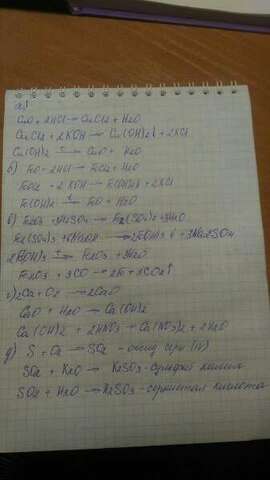 а)
CuO + 2HCl → CuCl2 + H2O
CuCl2 + 2KOH → Cu(OH)2↓ + 2KCl
Cu(OH)2 → CuO + H2O
б) FeO + 2HCl → FeCl2 + H2O
FeCl2 + 2KOH → Fe(OH)2↓ + 2KCl
Fe(OH)2 → FeO + H2O
в) Fe2O3 + 3H2SO4 → Fe2(SO4)3 + 3H2O
Fe2(SO4)3 + 6NaOH → 2Fe(OH)3↓ + 3Na2SO4
2Fe(OH)3 → Fe2O3 + 3H2O
Fe2O3 + 3CO → 2Fe + 3CO2↑
г) 2Ca + O2 → 2CaO
CaO + H2O → Ca(OH)2
Ca(OH)2 + 2HNO3 → Ca(NO3)2 + 2H2O
д) S + O2 → SO2 - оксид серы (IV)
SO2 + K2O → K2SO3 - сульфит калия
SO2 + H2O → H2SO3 - сернистая кислота